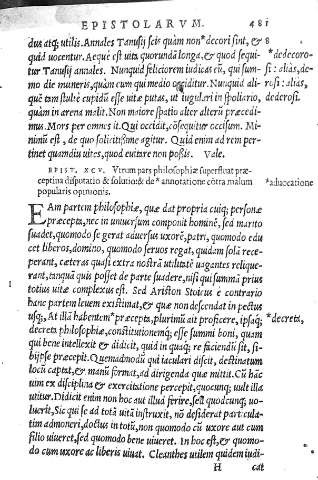 EPISTOLARVM. 481
dus atq; utilis. Annales Tanusij scis quàm non *decori sint, & 8
quid uocentur. Aequè est uita quorundā longa, & quod sequi- *dedecoro-
tur Tanusij annales. Nunquid feliciorem iudicas eū, qui sum- si: alias, de-
mo die muneris, quàm eum qui medio occiditur. Nunquid ali- rosi: alias,
quē tam stultè cupidū esse uitæ putas, ut iugulari in spoliario, dedecrosi.
quàm in arena malit. Non maiore spatio alter alterū præcedi-
mus. Mors per omnes it. Qui occidit, cōsequitur occisum. Mini-
minū est, de quo solicitissimè agitur. Quid enim ad rem per-
tinet quamdiu uites, quod euitare non possis. Vale.
EPIST. XCV. Vtrum pars philosophiæ superfluat præ-
ceptiua disputatio & solutio: & de *annotatione cōtra malum *aduocatione
popularis opinionis.
EAm partem philosophiæ, quæ dat propria cuiq; personæ
præcepta, nec in uniuersum componit hominē, sed marito
suadet, quomodo se gerat aduersus uxorē, patri, quomodo edu
cet liberos, domino, quomodo seruos regat, quidam solā rece-
perant, cæteras quasi extra nostrā utilitatē uagantes relique-
rant, tanquā quis posset de parte suadere, nisi qui summā prius
totius uitæ complexus est. Sed Ariston Stoicus è contrario
hanc partem leuem existimat, & quæ non descendat in pectus
usq;. At illā habentem *præcepta, plurimū ait proficere, ipsaq; *decreta,
decreta philosophiæ, constitutionemq; esse summi boni, quam
qui bene intellexit & didicit, quid in quaq; re faciendū sit, si-
bijpse præcepit. Quemadmodū qui iaculari discit, destinatum
locū captat, & manū format, ad dirigenda quæ mittit. Cū hāc
uim ex disciplina & exercitatione percepit, quocunq; uult illa
utitur. Didicit enim non hoc aut illud ferire, sed quodcunq; uo-
luerit, Sic qui se ad totā uitā instruxit, nō desiderat particula-
tim admoneri, doctus in totū, non quomodo cū uxore aut cum
filio uiueret, sed quomodo bene uiueret. In hoc est, & quomo-
do cum uxore ac liberis uiuat. Cleanthes utilem quidem iudi-
H cat